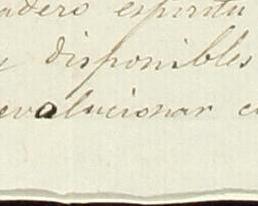 adero espiritu
disponibles
evolucionar